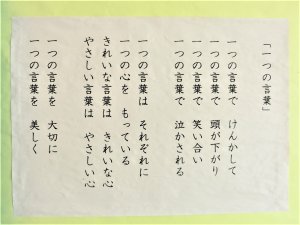 「一つの言葉」
一つの言葉で けんかして
一つの言葉で 頭が下がり
一つの言葉で 笑い合い
一つの言葉で 泣かされる
一つの言葉は それぞれに
一つの心を もっている
きれいな言葉は きれいな心
やさしい言葉は やさしい心
一つの言葉を 大切に
一つの言葉を 美しく